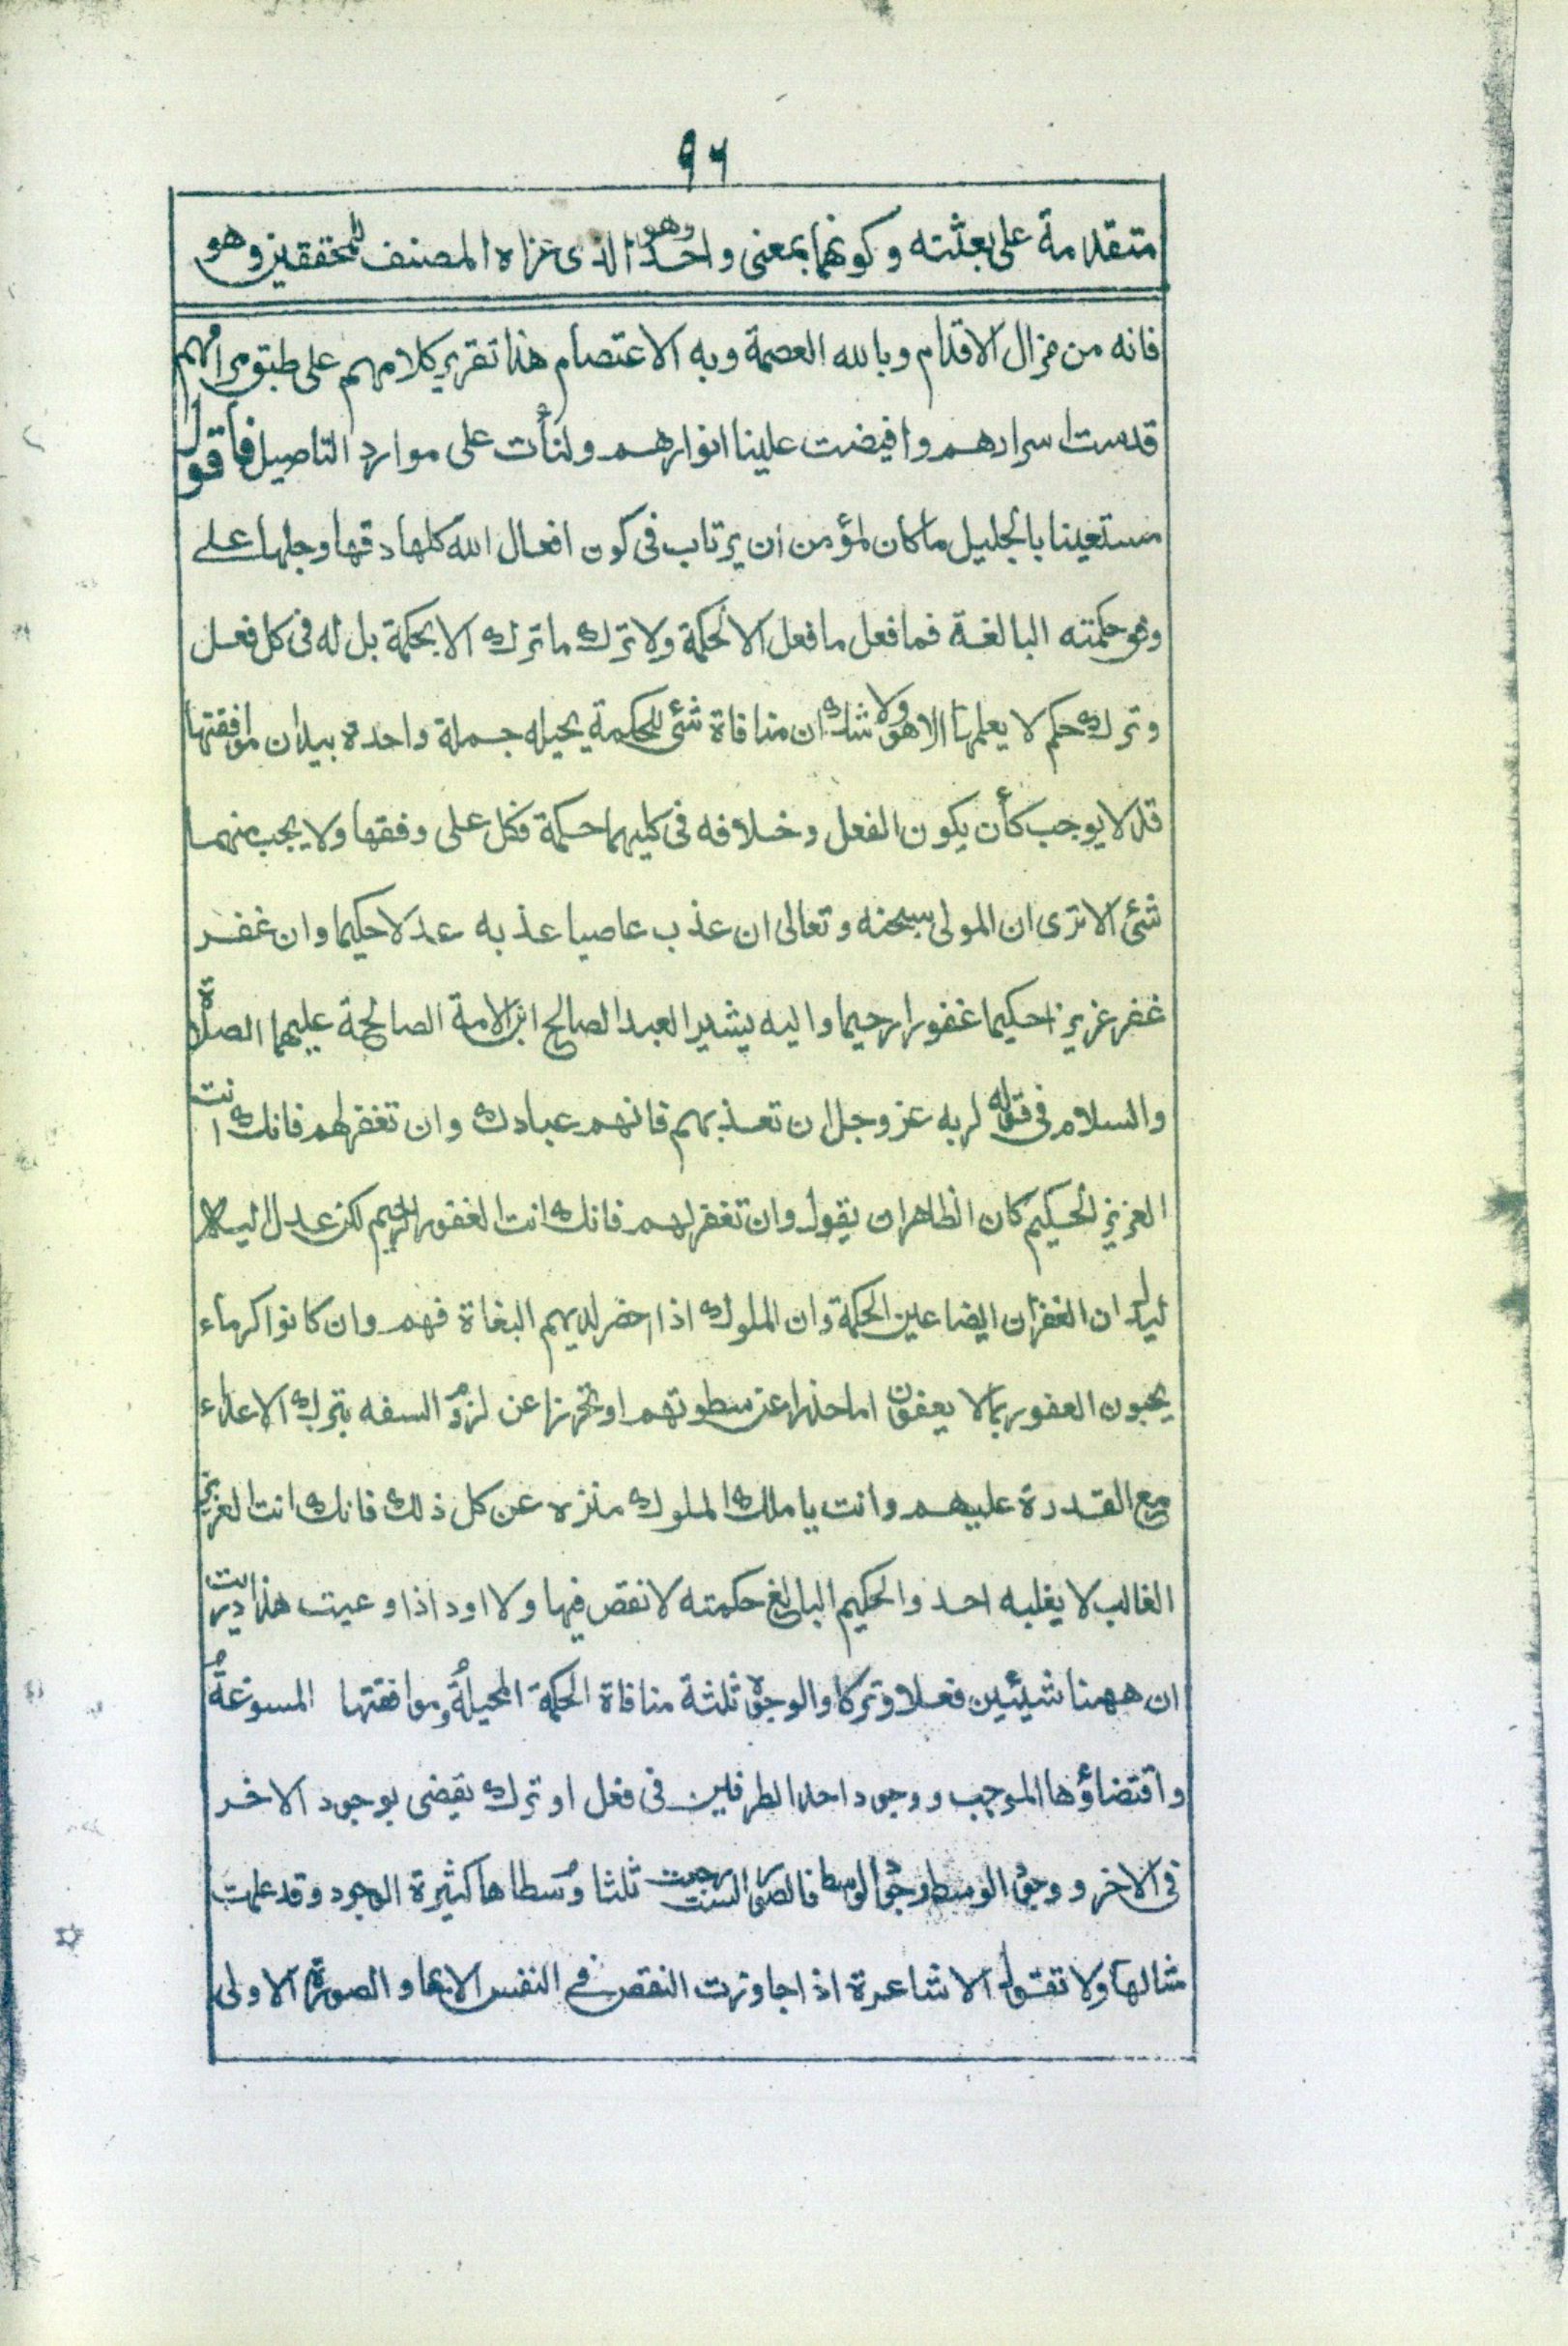 ٩٦
متقدمة على بعثته وكونهما بمعنى واحد وهو الذى عزاه المصنف للمحققين وهو
فانه من مزال الاقدام وبالله العصمة وبه الاعتصام هذا تقرير كلامهم على طبق مرامهم
قدست اسرارهم وافيضت علينا انوارهم ولنأت على موارد التاصيل فأقول
مستعينا بالجليل ماكان لمؤمن ان يرتاب فى كون افعال الله كلها دقها وجلها على
وفق حكمته البالغة فما فعل ما فعل الا لحكمة ولا ترك ما ترك الا بحكمة بل له فى كل فعل
وترك حكم لا يعلمها الا هو ولا شك ان منافاة شئ للحكمة يحيله جملة واحدة بيد ان موافقتها
قد لا يوجب كأن يكون الفعل وخلافه فى كليهما حكمة فكل على وفقها ولا يجب منهما
شئ الا ترى ان المولى سبحنه وتعالى ان عذب عاصيا عذبه عدلا حكيما وان غفر
غفر عزيزا حكيما غفورا رحيما واليه يشير العبد الصالح ابن الامة الصالحة عليهما الصلاة
والسلام فى قوله لربه عز وجل ان تعذبهم فانهم عبادك وان تغفر لهم فانك انت
العزيز الحكيم كان الظاهر ان يقول وان تغفر لهم فانك انت الغفور الرحيم لكن عدل اليه
ليدل ان الغفران ايضا عين الحكمة وان الملوك اذا حضر لديهم البغاة فهم وان كانوا كرماء
يحبون العفو ربما لا يعفون اما حذرا عن سطوتهم او تحرزا عن لزوم السفه بترك الاعداء
مع القدرة عليهم وانت يا ملك الملوك منزه عن كل ذلك فانك انت العزيز
الغالب لا يغلبه احد والحكيم البالغ حكمته لا نقص فيها ولا اود اذا وعيت هذا دريت
ان ههنا شيئين فعلا وتركا والوجوه ثلثة منافاة الحكمة المحيلة وموافقتها المسوغة
واقتضاؤها الموجب ووجود احد الطرفين فى فعل او ترك يقضى بوجود الاخر
فى الاخر ووجود الوسط وجود الوسط فالصور الست رجعت ثلثا وسطاها كثيرة الوجود وقد علمت
مثالها ولا تقول الاشاعرة اذا جاوزت النقص فى النفس الا بها والصورة الاولى